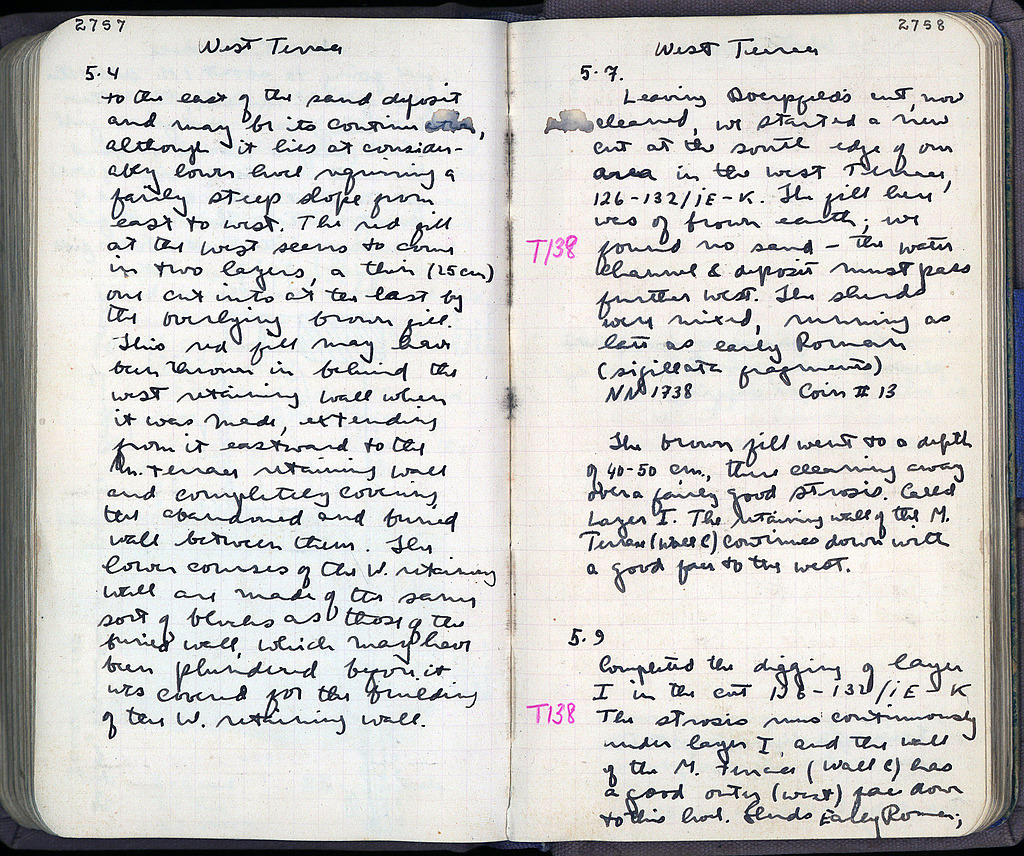 2757
West Terrace
5.4
to the east of the sand deposit
and may be its continu
although it lies at consider-
ably lower level requiring a
fairly steep slope from
east to west. The red fill
at the west seems to come
in two layers, a thin (25 cm)
one cut into at the east by
the overlying brown fill.
This red fill may have
been thrown in behind the
west retaining wall when
it was made, extending
from it eastward to the
M. Terrace retaining wall
and completely covering
the abandoned and buried
wall between them. The
lower courses of the W. retaining
wall are made of the same
sort of blocks as those of the
buried wall, which may have
been plundered before it
was covered for the building
of the W. retaining wall.
2758
West Terrace
5.7.
Leaving Doerpfeld's cut, now
cleaned, we started a new
cut at the south edge of our
area in the west Terrace,
126-132/iE-K. The fill here
was of brown earth; we
T138
found no sand - the water
channel & deposit must pass
further west. The sherds
were mixed, running as
late as early Roman
(sigillata fragments)
NN 1738 Coin # 13
The brown fill went to a depth
of 40-50 cm., then cleaning away
over a fairly good strosis. Called
Layer I. The retaining wall of the M.
Terrace (Wall C) continues down with
a good face to the west.
5.9
Completed the digging of layer
I in the cut 128-132/iE-K
T138
The strosis runs continuously
under layer I, and the wall
of the M. Terrace (Wall C) has
a good outer (west) face down
to this level. Sherds Early Roman;